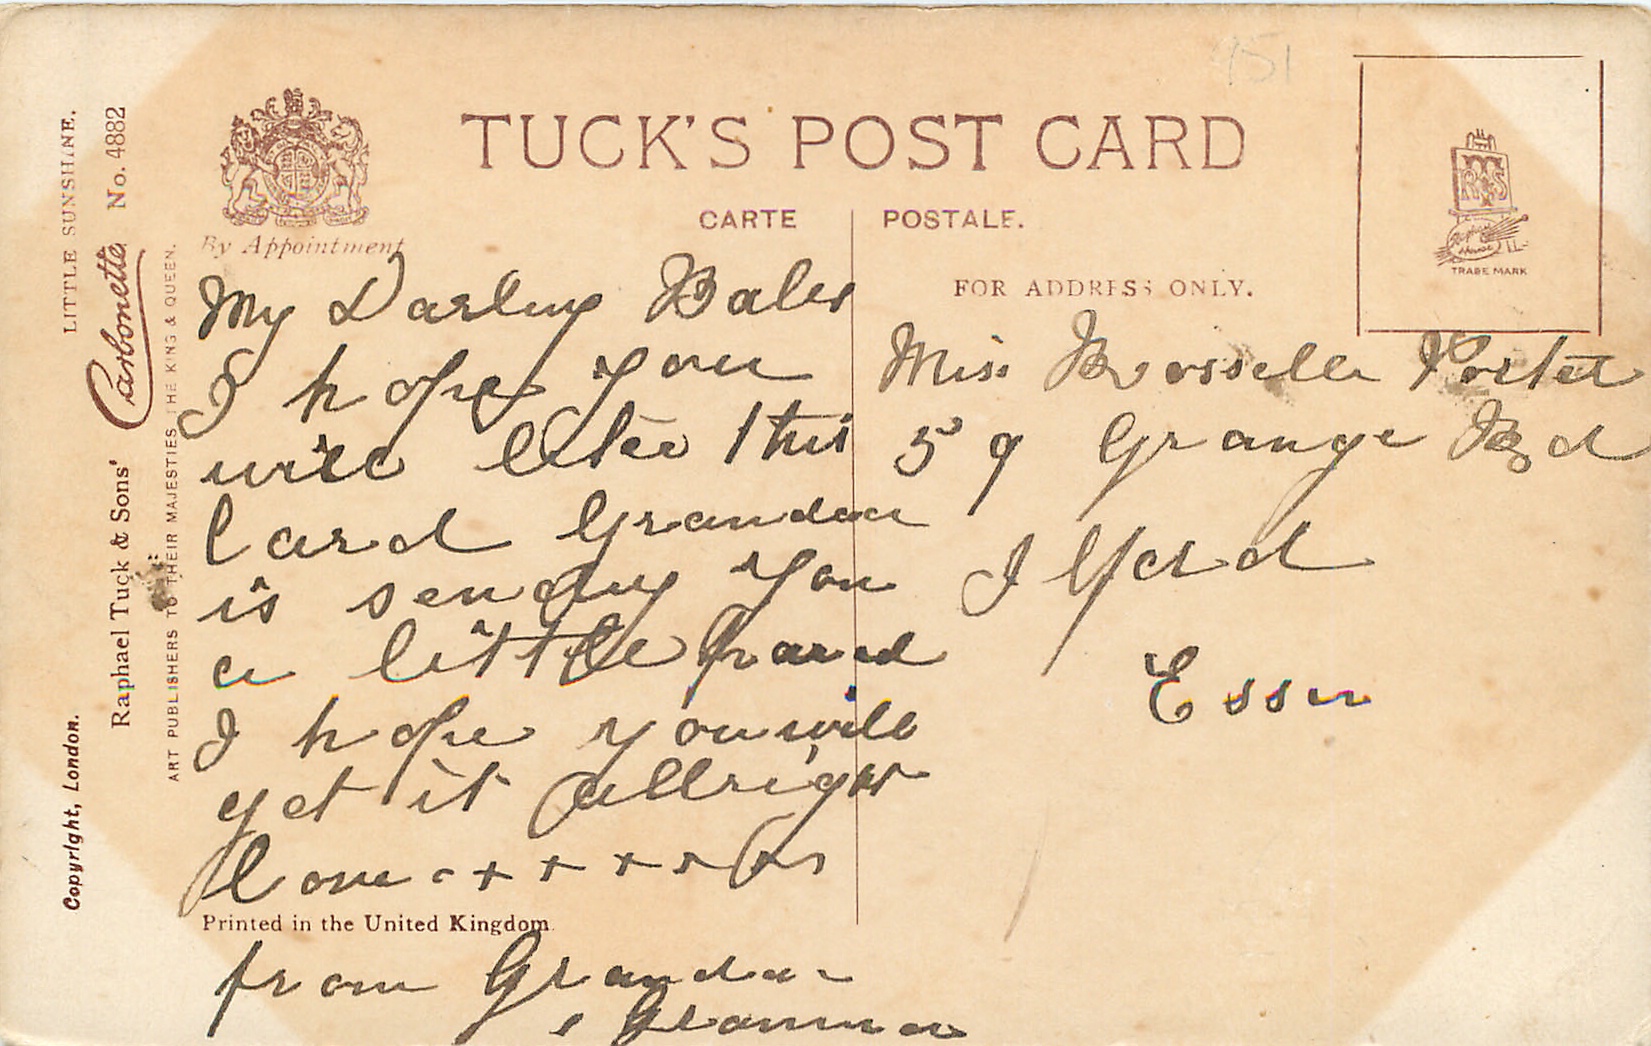 151
TUCK'S POST CARD
CARTE POSTALE.
By Appointment
FOR ADDRESS ONLY.
TRADE MARK
LITTLE SUNSHINE.
Carbonette No. 4882
Raphael Tuck & Sons'
ART PUBLISHERS TO THEIR MAJESTIES THE KING & QUEEN.
Copyright, London.
My Darling
I hope you
will like this
Card Grandda
is sending you
a little
I hope you will
get it allright
love + + + + +
Printed in the United Kingdom
from Grandda
& Gramma
Miss Porter
59 Grange Rd
Ilford
Essex